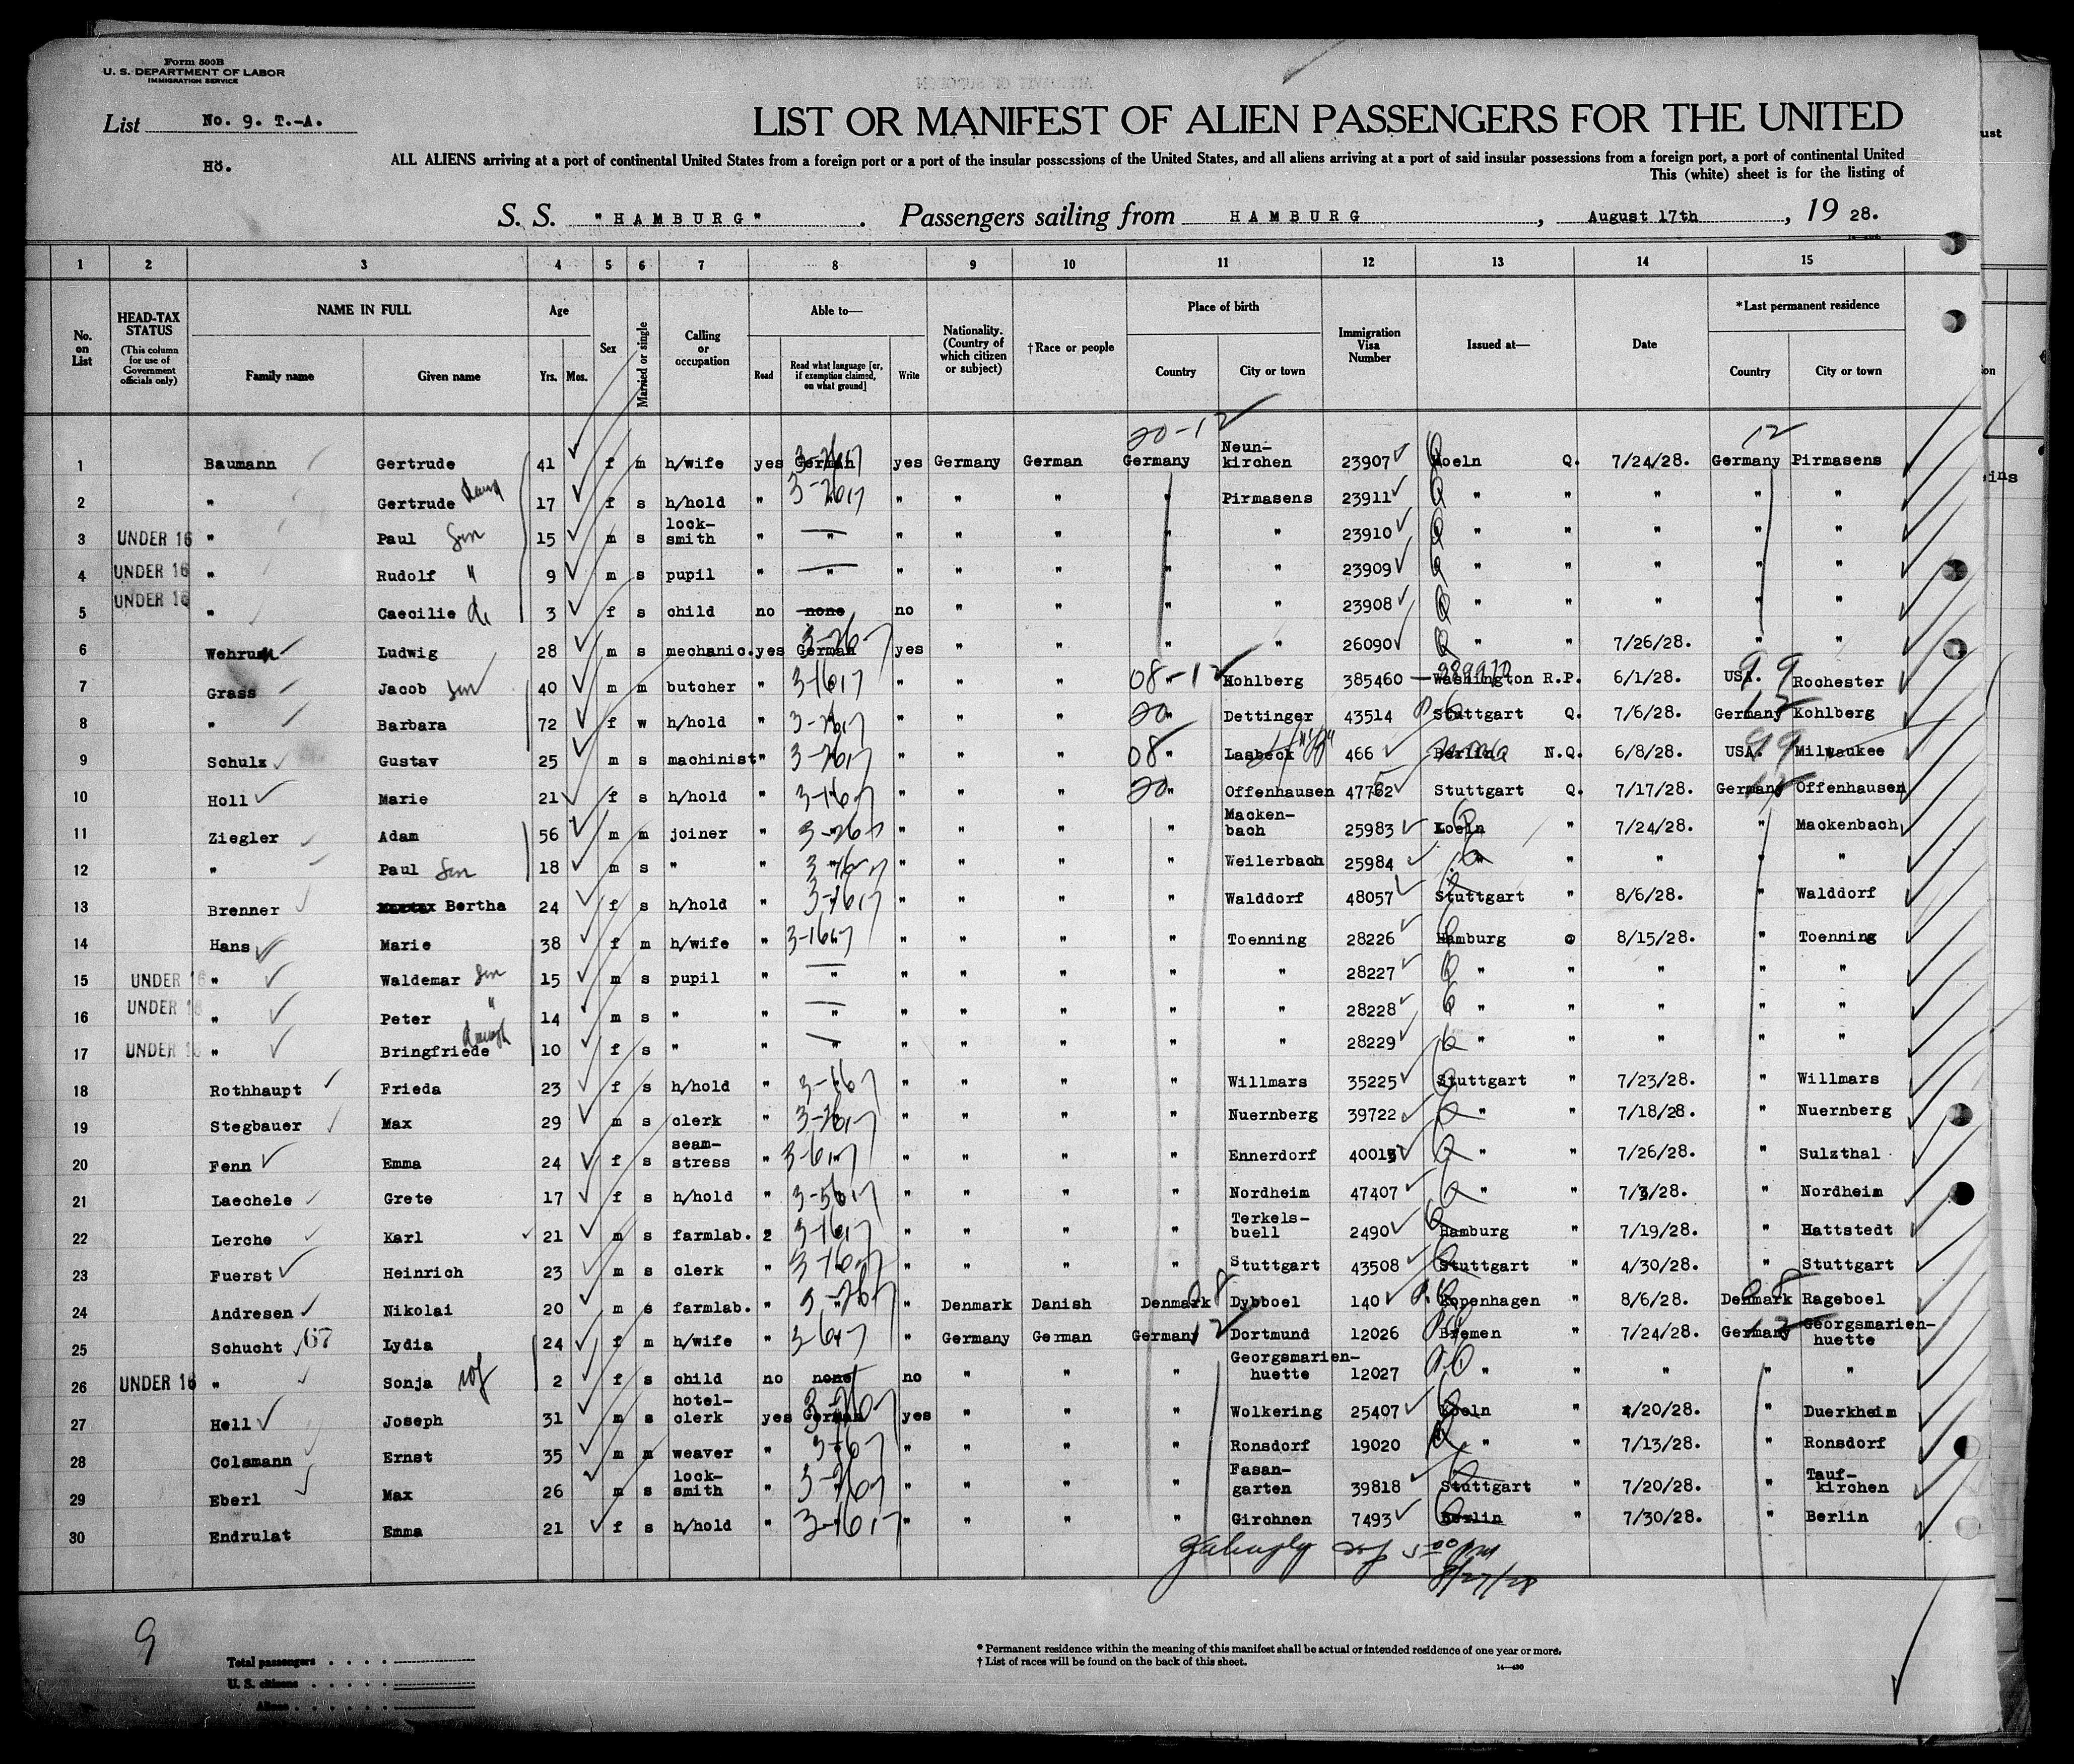 Form 500B
U. S. DEPARTMENT OF LABOR
IMMIGRATION SERVICE
List No. 9. T.-A.
Hö.
LIST OR MANIFEST OF ALIEN PASSENGERS FOR THE UNITED
ALL ALIENS arriving at a port of continental United States from a foreign port or a port of the insular possessions of the United States, and all aliens arriving at a port of said insular possessions from a foreign port, a port of continental United
This (white) sheet is for the listing of
S. S. "HAMBURG". Passengers sailing from HAMBURG, August 17th, 19 28.
1 2 3 4 5 6 7 8 9 10 11 12 13 14 15
No. on List
HEAD-TAX STATUS (This column for use of Government officials only)
NAME IN FULL Family name Given name
Age Yrs. Mos.
Sex
Married or single
Calling or occupation
Able to— Read Read what language [or, if exemption claimed, on what ground] Write
Nationality. (Country of which citizen or subject)
†Race or people
Place of birth Country City or town
Immigration Visa Number
Issued at—
Date
*Last permanent residence Country City or town
20-12 12
1 Baumann Gertrude 41 f m h/wife yes German yes Germany German Germany Neun-kirchen 23907 Koeln Q. 7/24/28. Germany Pirmasens
2 " Gertrude daug 17 f s h/hold " 3-2617 " " " " Pirmasens 23911 " " " " "
3 UNDER 16 " Paul Son 15 m s lock-smith " " " " " " " 23910 " " " " "
4 UNDER 16 " Rudolf " 9 m s pupil " " " " " " " 23909 " " " " "
5 UNDER 16 " Caecilie 3 f s child no none no " " " " 23908 " " " " "
6 Wehrum Ludwig 28 m s mechanic. yes German yes " " " " 26090 " " 7/26/28. " "
7 Grass Jacob Son 40 m m butcher " " " " 08-12 " Kohlberg 385460 Washington R.P. 6/1/28. USA. 99 Rochester
8 " Barbara 72 f w h/hold " " " " 20 " Dettinger 43514 Stuttgart Q. 7/6/28. Germany Kohlberg
9 Schulz Gustav 25 m s machinist " " " " 08 " Lasbeck 466 Berlin N.Q. 6/8/28. USA. 99 Milwaukee
10 Holl Marie 21 f s h/hold " " " " 20 " Offenhausen 47762 Stuttgart Q. 7/17/28. Germany Offenhausen
11 Ziegler Adam 56 m m joiner " " " " " Macken-bach 25983 Koeln " 7/24/28. " Mackenbach
12 " Paul Son 18 m s " " " " " " Weilerbach 25984 " " " " "
13 Brenner Bertha 24 f s h/hold " " " " " Walddorf 48057 Stuttgart " 8/6/28. " Walddorf
14 Hans Marie 38 f m h/wife " " " " " Toenning 28226 Hamburg 8/15/28. " Toenning
15 UNDER 16 " Waldemar Son 15 m s pupil " " " " " " " 28227 " " " " "
16 UNDER 16 " Peter " 14 m s " " " " " " " " 28228 " " " " "
17 UNDER 16 " Bringfriede daugh 10 f s " " " " " " " " 28229 " " " " "
18 Rothhaupt Frieda 23 f s h/hold " " " " " Willmars 35225 Stuttgart " 7/23/28. " Willmars
19 Stegbauer Max 29 m s clerk " " " " " Nuernberg 39722 " " 7/18/28. " Nuernberg
20 Fenn Emma 24 f s seam-stress " " " " " Ennerdorf " " 7/26/28. " Sulzthal
21 Laechele Grete 17 f s h/hold " " " " " Nordheim 47407 " " 7/3/28. " Nordheim
22 Lerche Karl 21 m s farmlab. " " " " Terkels-buell 2490 Hamburg " 7/19/28. " Hattstedt
23 Fuerst Heinrich 23 m s clerk " " " " " Stuttgart 43508 Stuttgart " 4/30/28. " Stuttgart
24 Andresen Nikolai 20 m s farmlab. " " Denmark Danish Denmark 08 Dybboel 140 Kopenhagen " 8/6/28. Denmark 08 Rageboel
25 Schucht 67 Lydia 24 f m h/wife " " Germany German Germany 12 Dortmund 12026 Bremen " 7/24/28. Germany Georgsmarien-huette
26 UNDER 16 " Sonja 2 f s child no none no " " " Georgsmarien-huette 12027 " " " " "
27 Hell Joseph 31 m s hotel-clerk yes German yes " " " Wolkering 25407 Koeln " 4/20/28. " Duerkheim
28 Colsmann Ernst 35 m m weaver " " " " " Ronsdorf 19020 " " 7/13/28. " Ronsdorf
29 Eberl Max 26 m s lock-smith " " " " " Fasan-garten 39818 Stuttgart " 7/20/28. " Tauf-kirchen
30 Endrulat Emma 21 f s h/hold " " " " " Girchnen 7493 Berlin " 7/30/28. " Berlin
8/27/28
9
Total passengers
U. S. citizens
Aliens
* Permanent residence within the meaning of this manifest shall be actual or intended residence of one year or more.
† List of races will be found on the back of this sheet.
14—430